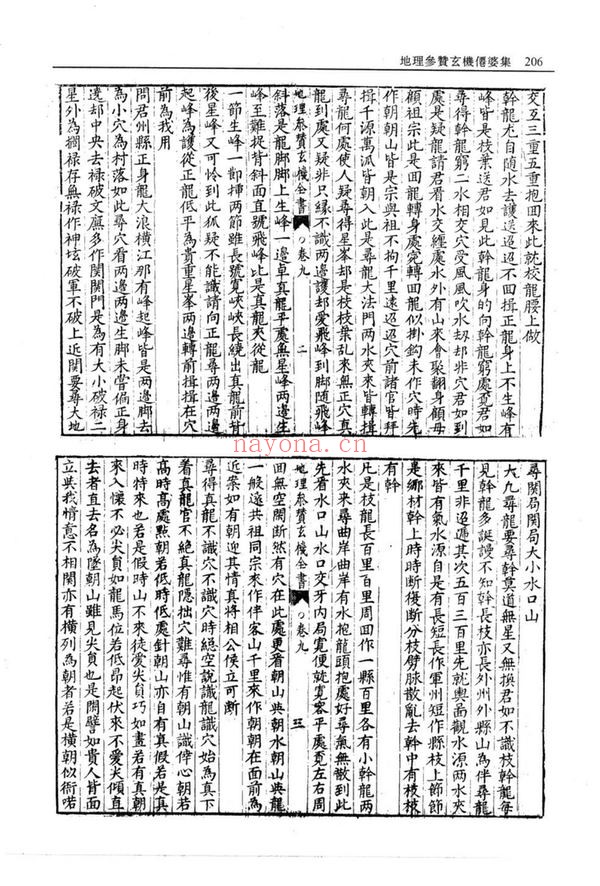 地理參贊玄機僊婆集 206
交互三重五重抱回來此就枝龍腰上做
幹龍尤自隨水去護送迢迢不回揖正龍身上不生峰有
峰皆是枝葉送君如見此幹龍身的向幹龍窮處覔君如
尋得幹龍窮二水相交穴受風風吹水刼却非穴君如到
處是疑龍請君看水交纏處水外有山來會聚翻身顧母
顧祖宗此是回龍轉身處宛轉回龍似掛鈎未作穴時先
作朝朝山皆是宗與祖不拘千里遠迢迢穴前諸官皆拜
揖千源萬派皆朝入此是尋龍大法門兩水夾來皆轉揖
尋龍何處使人疑尋得星峯却是枝枝葉亂來無正穴真
龍到處又疑非只緣不識兩邊護却愛飛峰到脚隨飛峰
地理參贊玄機全書 卷九 二
斜落是龍脚脚上生峰一邊卓真龍平處無星峰兩邊生
峰至難捉背斜面直號飛峰比是真龍夾從龍
一節生峰一節揷兩節雖長號寬峽峽長繞出真龍前背
後星峰又可怜到此狐疑不能識請向正龍尋兩邊兩邊
起峰為護從正龍低平為貴重星峯兩邊轉前揖揖在穴
前為我用
問君州縣正身龍大浪橫江那有峰起峰皆是兩邊脚去
為小穴為村落如此尋穴看兩邊兩邊生脚未嘗偏正身
邊却中央去祿破文廉多作関関門是為有大小破祿二
星外為攔祿存無祿作神坛破軍不破上近関要尋大地
尋関局関局大小水口山
大凡尋龍要尋幹莫道無星又無換君如不識枝幹龍每
見幹龍多誕謾不知幹長枝亦長外州外縣山為伴尋龍
千里非迢遞其次五百三百里先就輿啚觀水源兩水夾
來皆有氣水源自是有長短長作軍州短作縣枝上節節
是鄉村幹上時時斷復斷分枝劈脉散亂去幹中有枝枝
有幹
凡是枝龍長百里百里周回作一縣百里各有小幹龍兩
水夾來尋曲岸曲岸有水抱龍頭抱處好尋氣無散到此
先看水口山水口交牙內局寬便就寬容平處覔左右周
地理參贊玄機全書 卷九 三
回無空闕斷然有穴在此處更看朝山與朝水朝山與龍
一般遠共祖同宗來作伴客山千里來作朝朝在面前為
近案如有朝迎其情真將相公侯立可斷
尋得真龍不識穴不識穴時總空說識龍識穴始為真下
着真龍官不絕真龍隱拙穴難尋惟有朝山識倖心朝若
高時高處點朝若低時低處針朝山亦自有真假若是真
時特來也若是假時山不來徒愛尖員巧如畫若有真朝
來入懷不必尖員如龍馬位若低昂起伏來不愛尖傾直
去者直去名為墜朝山雖見尖員也是閒譬如貴人背面
立與我情意不相関亦有橫列為朝者若是橫朝似衙喏
nayona.cn